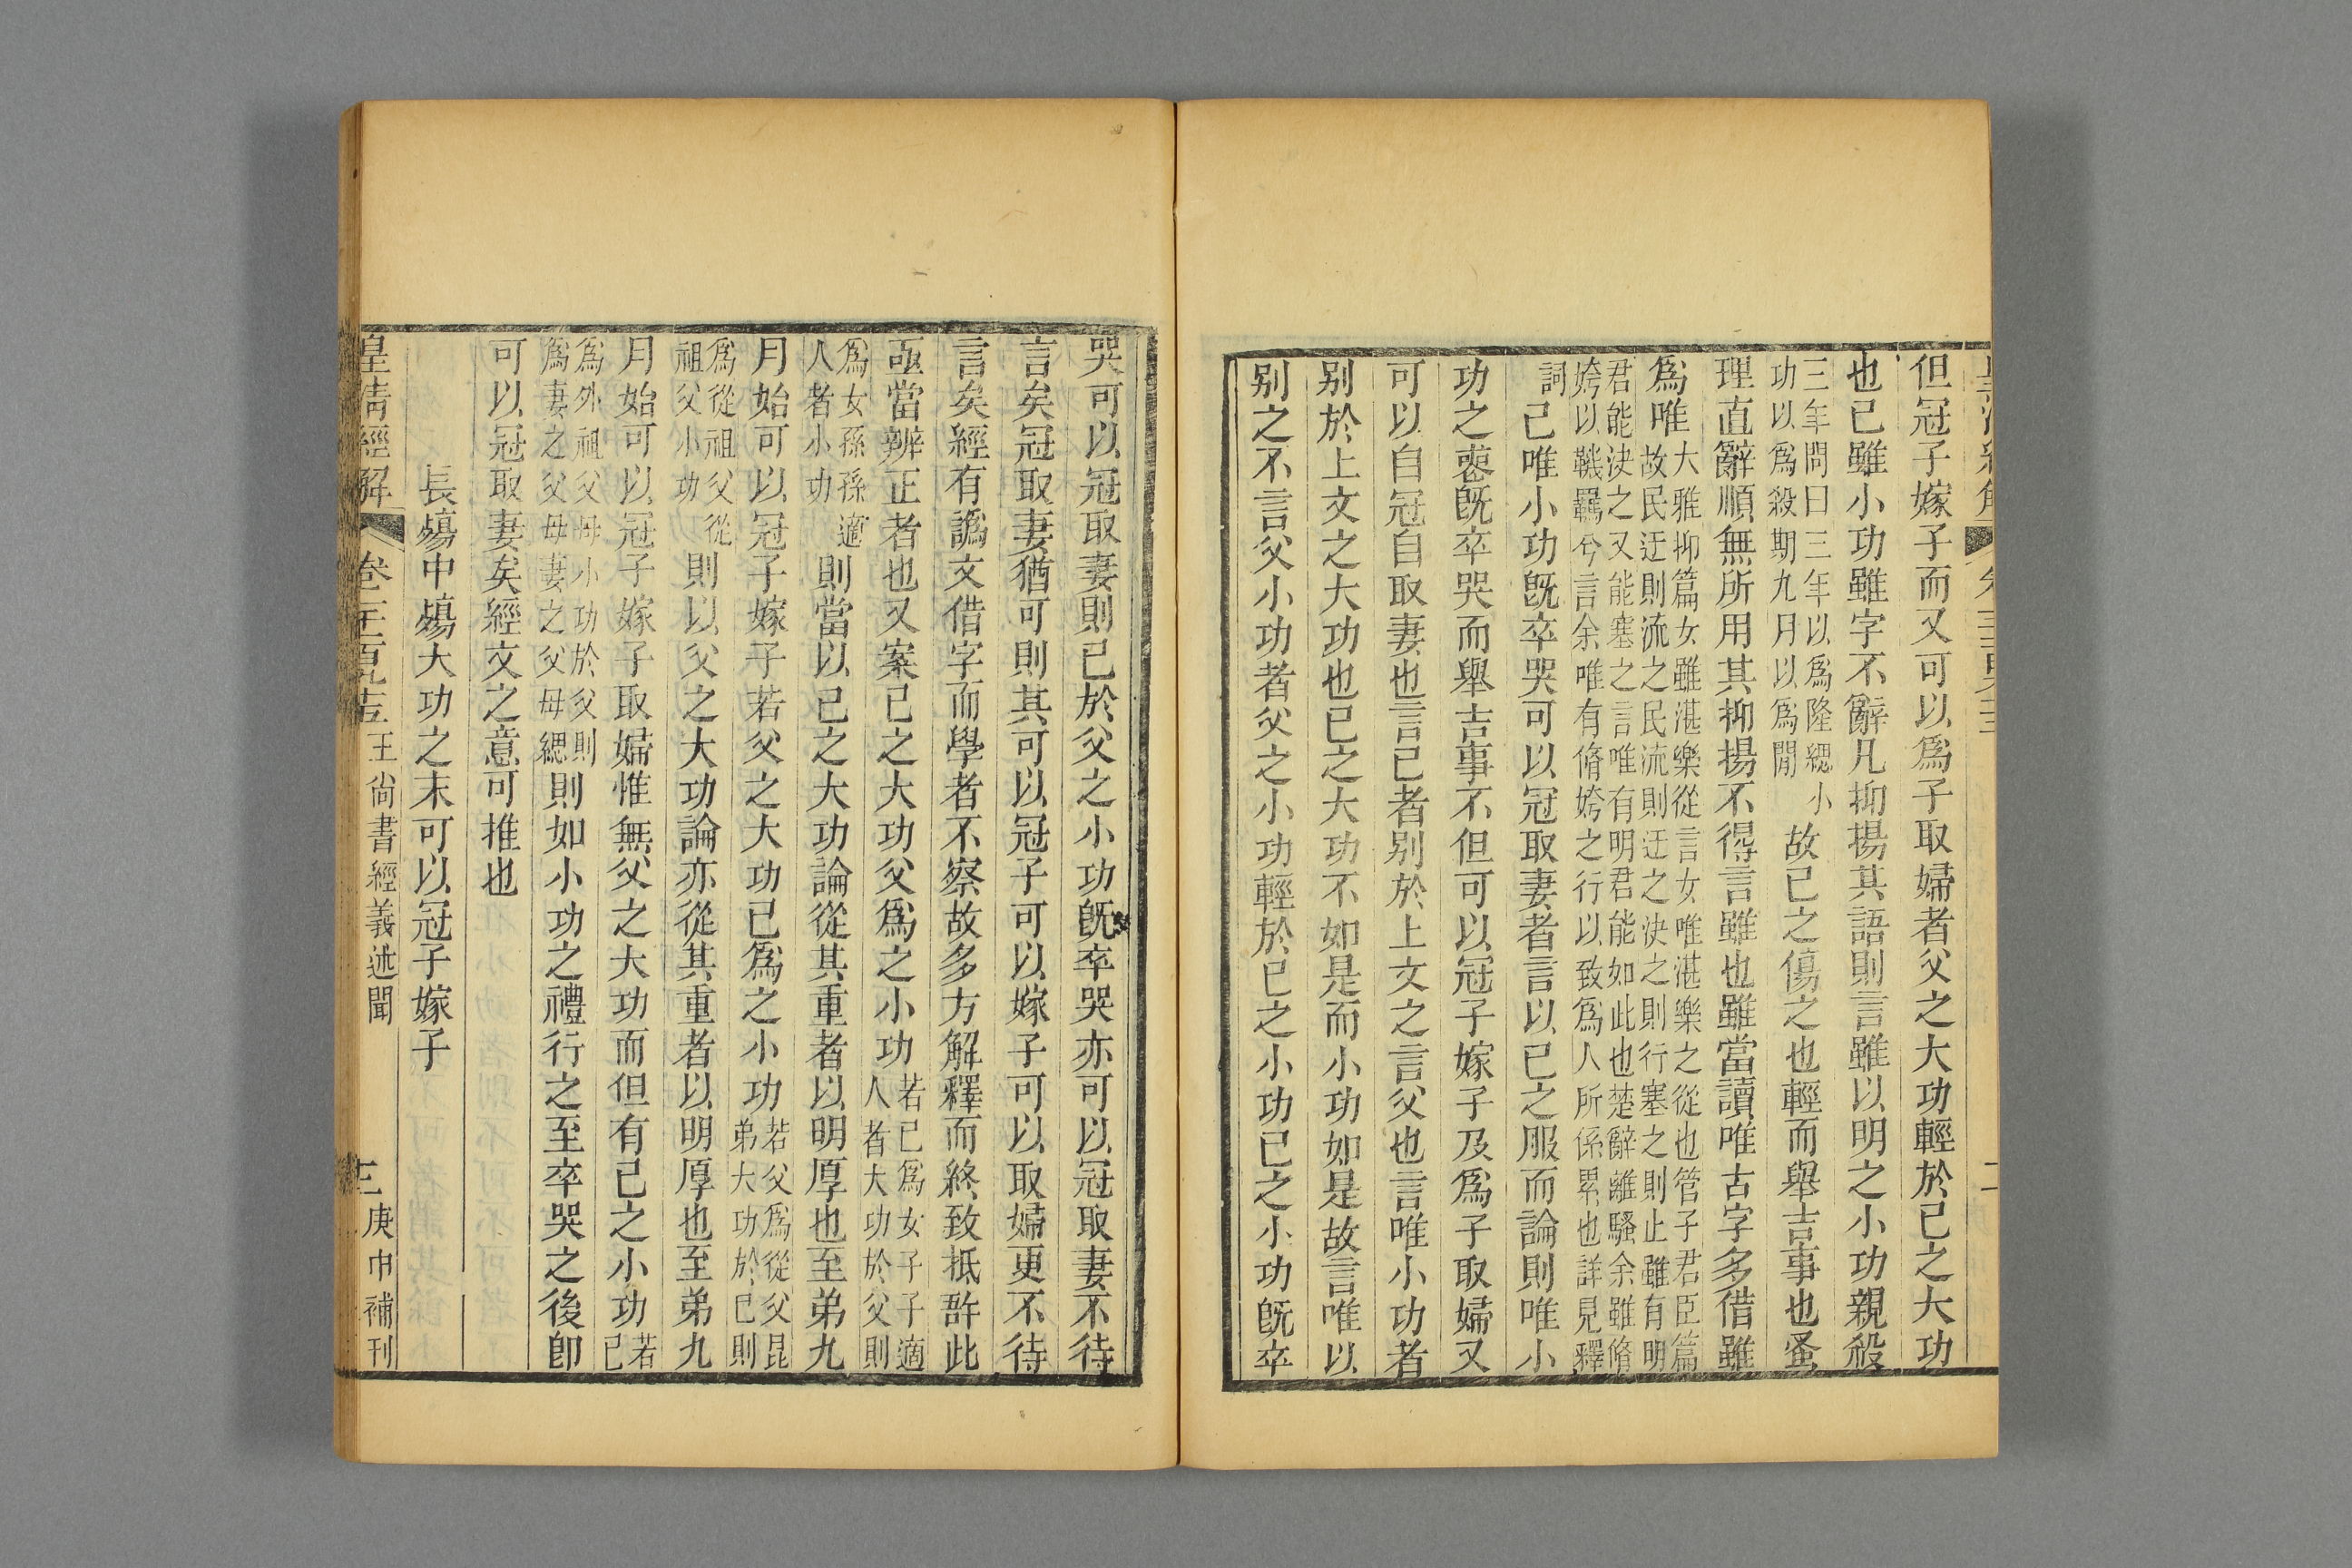 但冠子嫁子而又可以爲子取婦者父之大功輕於己之大功
也己雖小功雖字不辭凡抑揚其語則言雖以明之小功親殺
三年問曰三年以爲隆緦小
功以爲殺期九月以爲閒
故己之傷之也輕而舉吉事也蚤
理直辭順無所用其抑揚不得言雖也雖當讀唯古字多借雖
爲唯
大雅抑篇女雖湛樂從言女唯湛樂之從也管子君臣篇
故民迂則流之民流則迂之決之則行塞之則止雖有明
君能決之又能塞之言唯有明君能如此也楚辭離騷余雖脩
姱以鞿羈兮言余唯有脩姱之行以致爲人所係累也詳見釋
詞
己唯小功旣卒哭可以冠取妻者言以己之服而論則唯小
功之喪旣卒哭而舉吉事不但可以冠子嫁子及爲子取婦又
可以自冠自取妻也言己者別於上文之言父也言唯小功者
別於上文之大功也己之大功不如是而小功如是故言唯以
別之不言父小功者父之小功輕於己之小功己之小功旣卒
哭可以冠取妻則己於父之小功旣卒哭亦可以冠取妻不待
言矣冠取妻猶可則其可以冠子可以嫁子可以取婦更不待
言矣經有譌文借字而學者不察故多方解釋而終致抵啎此
亟當辨正者也又案己之大功父爲之小功
若己爲女子子適
人者大功於父則
爲女孫孫適
人者小功
則當以己之大功論從其重者以明厚也至弟九
月始可以冠子嫁子若父之大功己爲之小功
若父爲從父昆
弟大功於己則
爲從祖父從
祖父小功
則以父之大功論亦從其重者以明厚也至弟九
月始可以冠子嫁子取婦惟無父之大功而但有己之小功
若
己
爲外祖父母小功於父則
爲妻之父母妻之父母緦
則如小功之禮行之至卒哭之後卽
可以冠取妻矣經文之意可推也
長殤中殤大功之末可以冠子嫁子
皇清經解
卷一千一百九十五
王尚書經義述聞
十三
庚申補刊